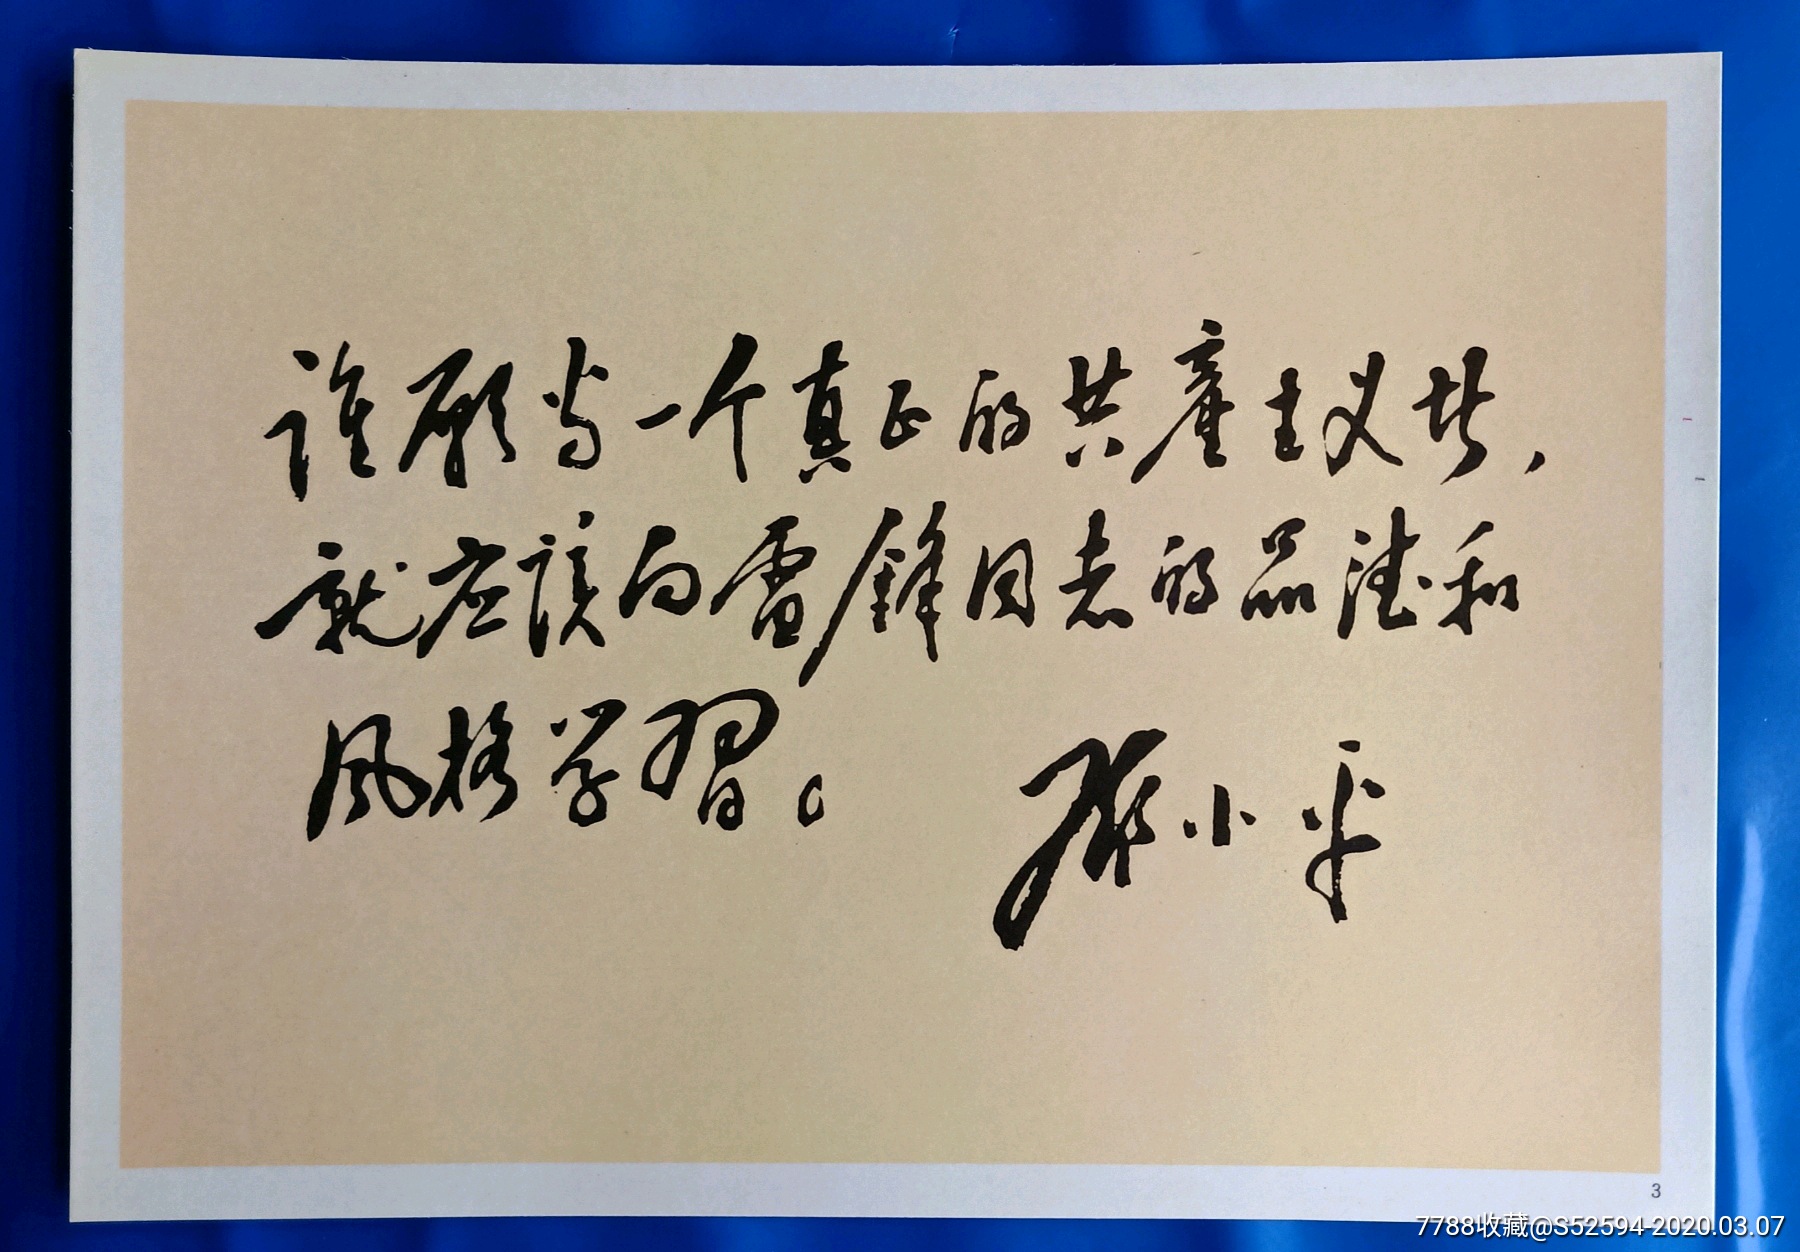 谁愿当一个真正的共产主义者，
就应该向雷锋同志的品德和
风格学习。
邓小平
3
7788收藏@S52594 2020.03.07